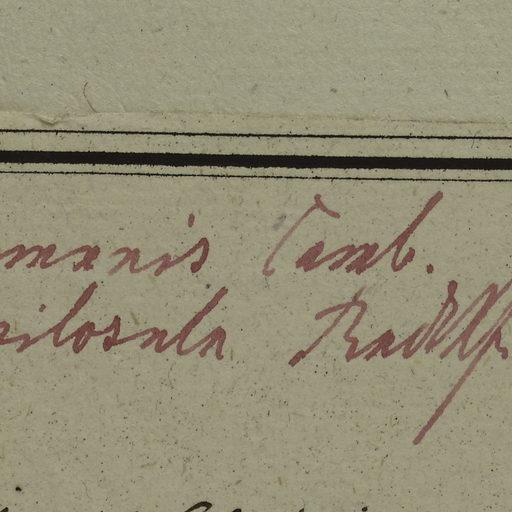 manis Camb.
ilosula Radlk